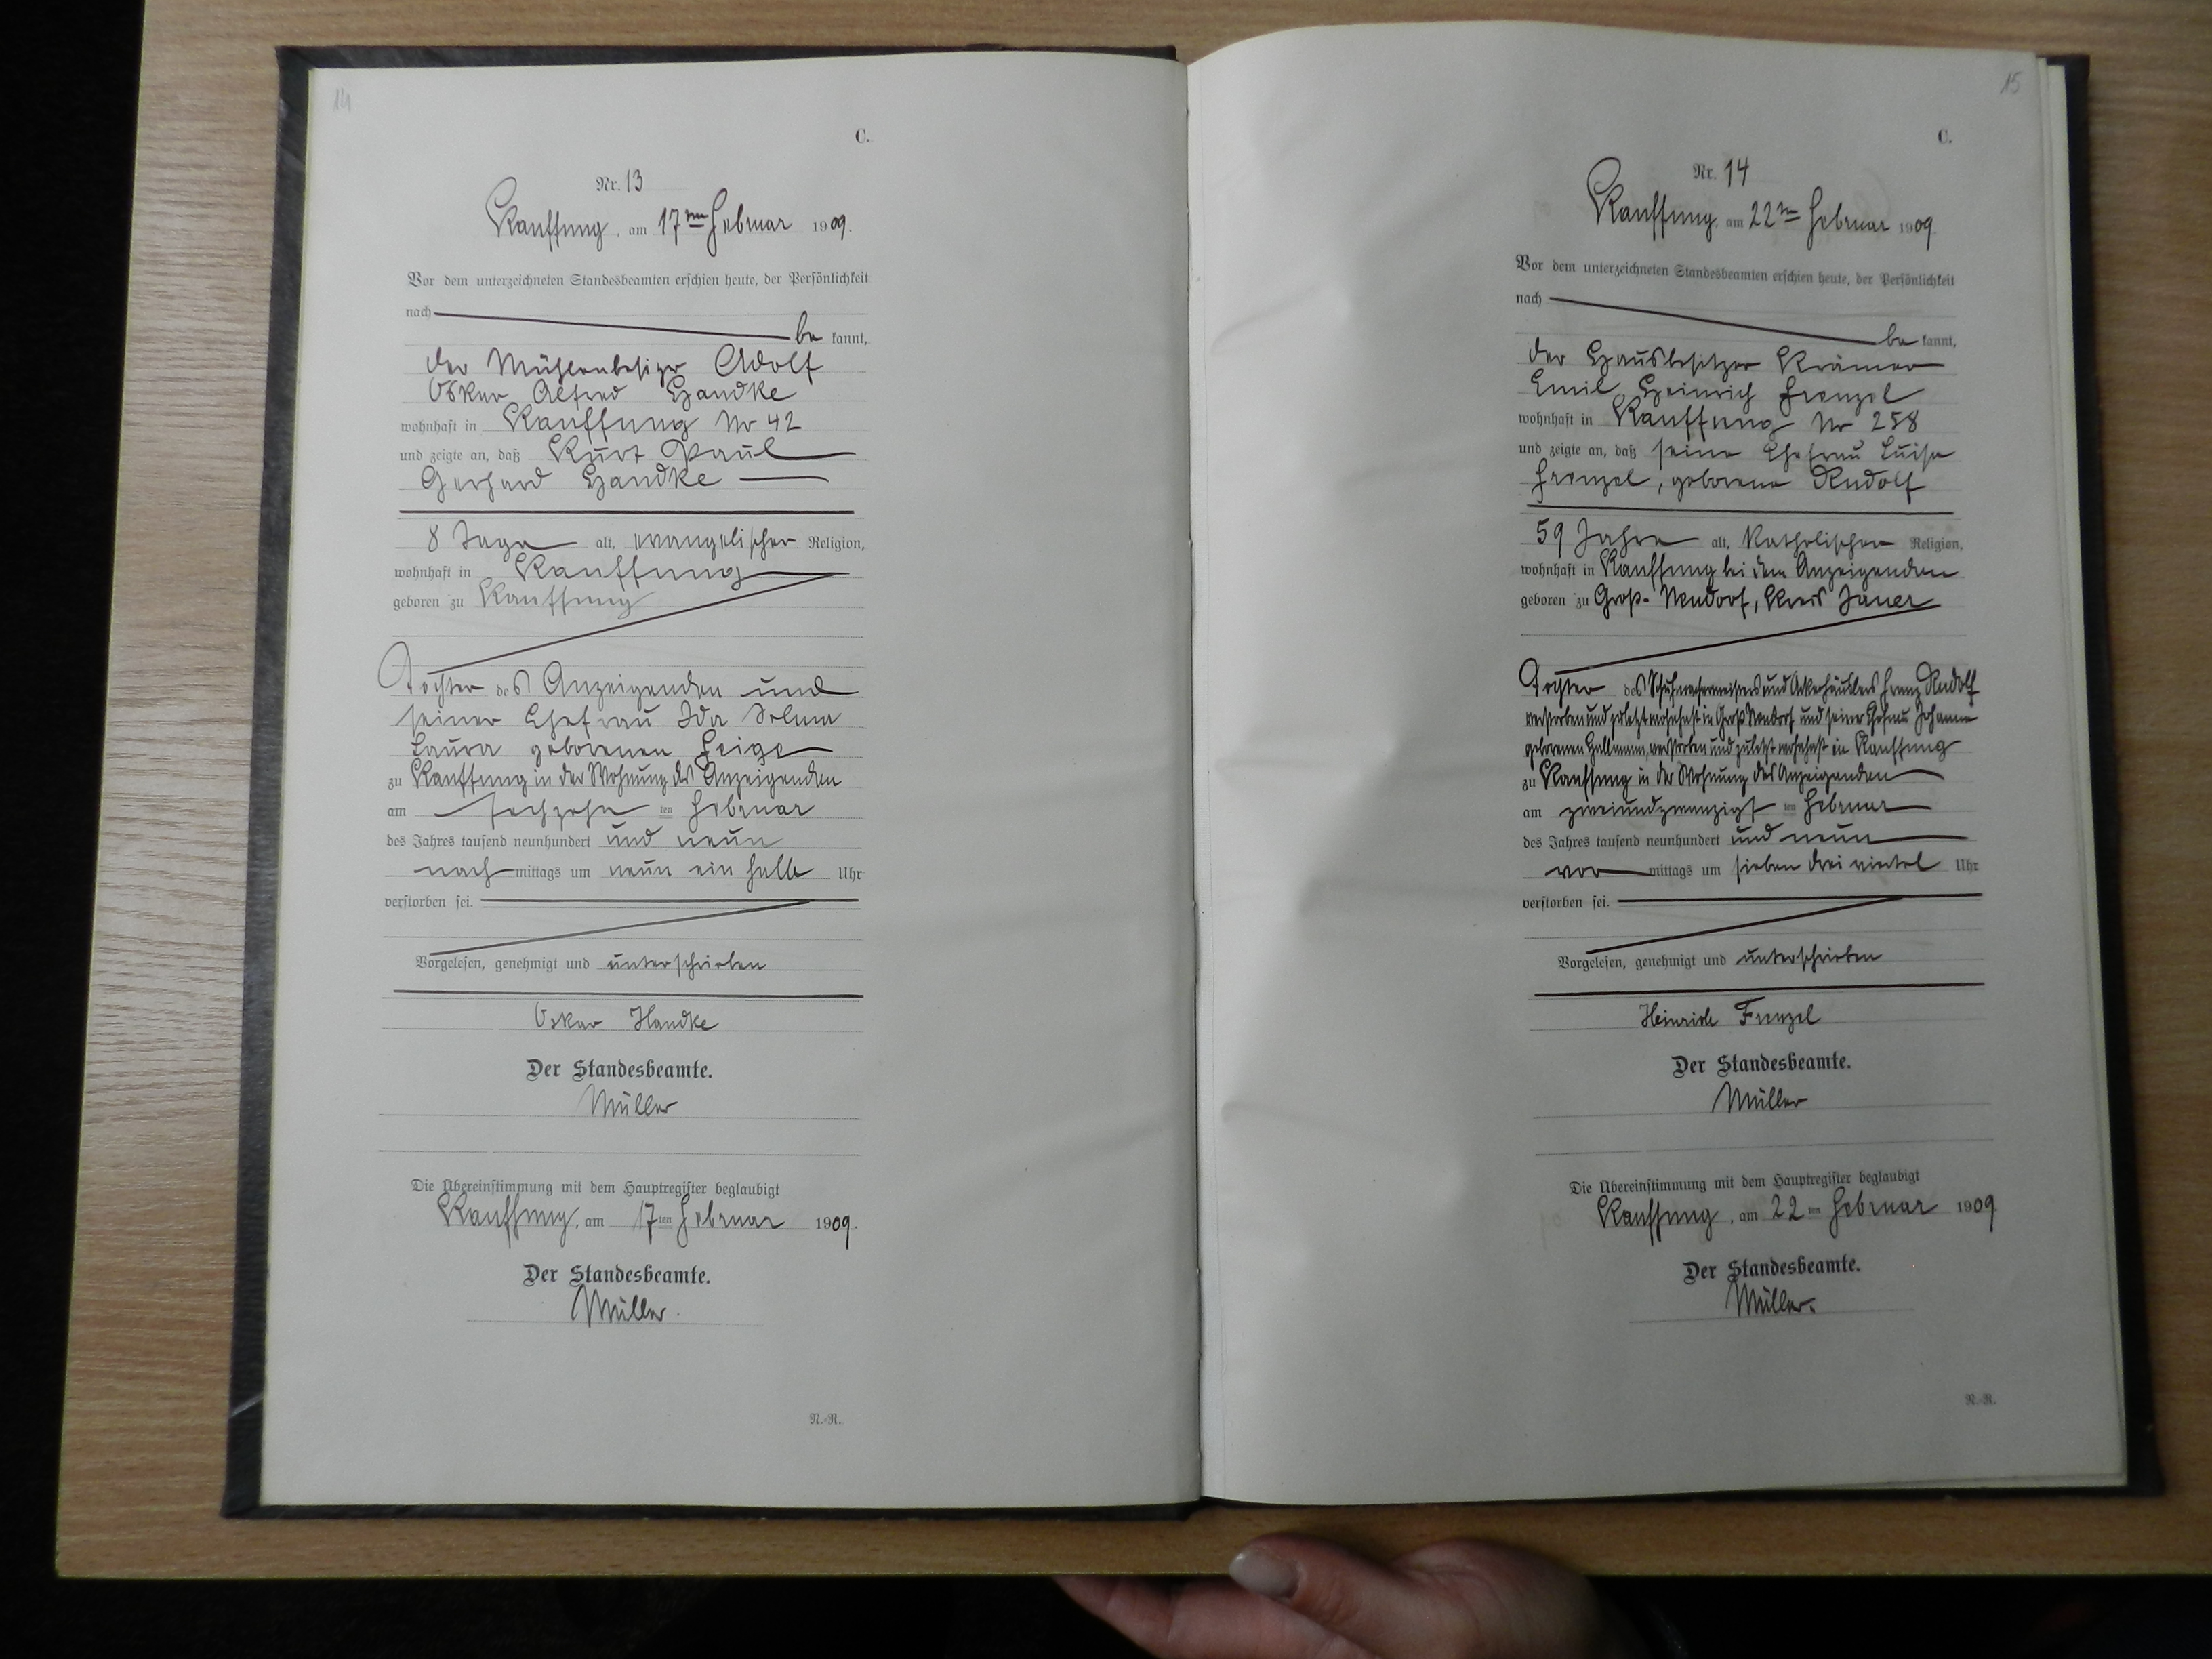 14
C.
Nr. 13
Kauffung, am 17ten Februar 1909.
Vor dem unterzeichneten Standesbeamten erschien heute, der Persönlichkeit
nach be kannt,
der Mühlenbesitzer Adolf
Oskar Alfred Handke
wohnhaft in Kauffung Nr 42
und zeigte an, daß Kurt Paul
Gerhard Handke
8 Tage alt, evangelischer Religion,
wohnhaft in Kauffung
geboren zu Kauffung
Tochter des Anzeigenden und
seiner Ehefrau Ida Selma
Laura geborenen Feige
zu Kauffung in der Wohnung des Anzeigenden
am sechzehn ten Februar
des Jahres tausend neunhundert und neun
nach mittags um neun ein halb Uhr
verstorben sei.
Vorgelesen, genehmigt und unterschrieben
Oskar Handke
Der Standesbeamte.
Müller
Die Übereinstimmung mit dem Hauptregister beglaubigt
Kauffung, am 17ten Februar 1909.
Der Standesbeamte.
Müller.
R.-R.
15
C.
Nr. 14
Kauffung, am 22ten Februar 1909.
Vor dem unterzeichneten Standesbeamten erschien heute, der Persönlichkeit
nach be kannt,
der Hausbesitzer Krämer
Emil Heinrich Frenzel
wohnhaft in Kauffung Nr 258
und zeigte an, daß seine Ehefrau Luise
Frenzel, geborene Rudolf
59 Jahre alt, katholischer Religion,
wohnhaft in Kauffung bei dem Anzeigenden
geboren zu Groß-Neudorf, Kreis Jauer
Tochter des Schuhmachermeisters und Ackerhäuslers Franz Rudolf
verstorben und zuletzt wohnhaft in Groß Neudorf und seiner Ehefrau Johanna
geborenen verstorben und zuletzt wohnhaft in Kauffung
zu Kauffung in der Wohnung des Anzeigenden
am zweiundzwanzigs ten Februar
des Jahres tausend neunhundert und neun
vor mittags um sieben drei viertel Uhr
verstorben sei.
Vorgelesen, genehmigt und unterschrieben
Heinrich Frenzel
Der Standesbeamte.
Müller
Die Übereinstimmung mit dem Hauptregister beglaubigt
Kauffung, am 22ten Februar 1909
Der Standesbeamte.
Müller.
R.-R.